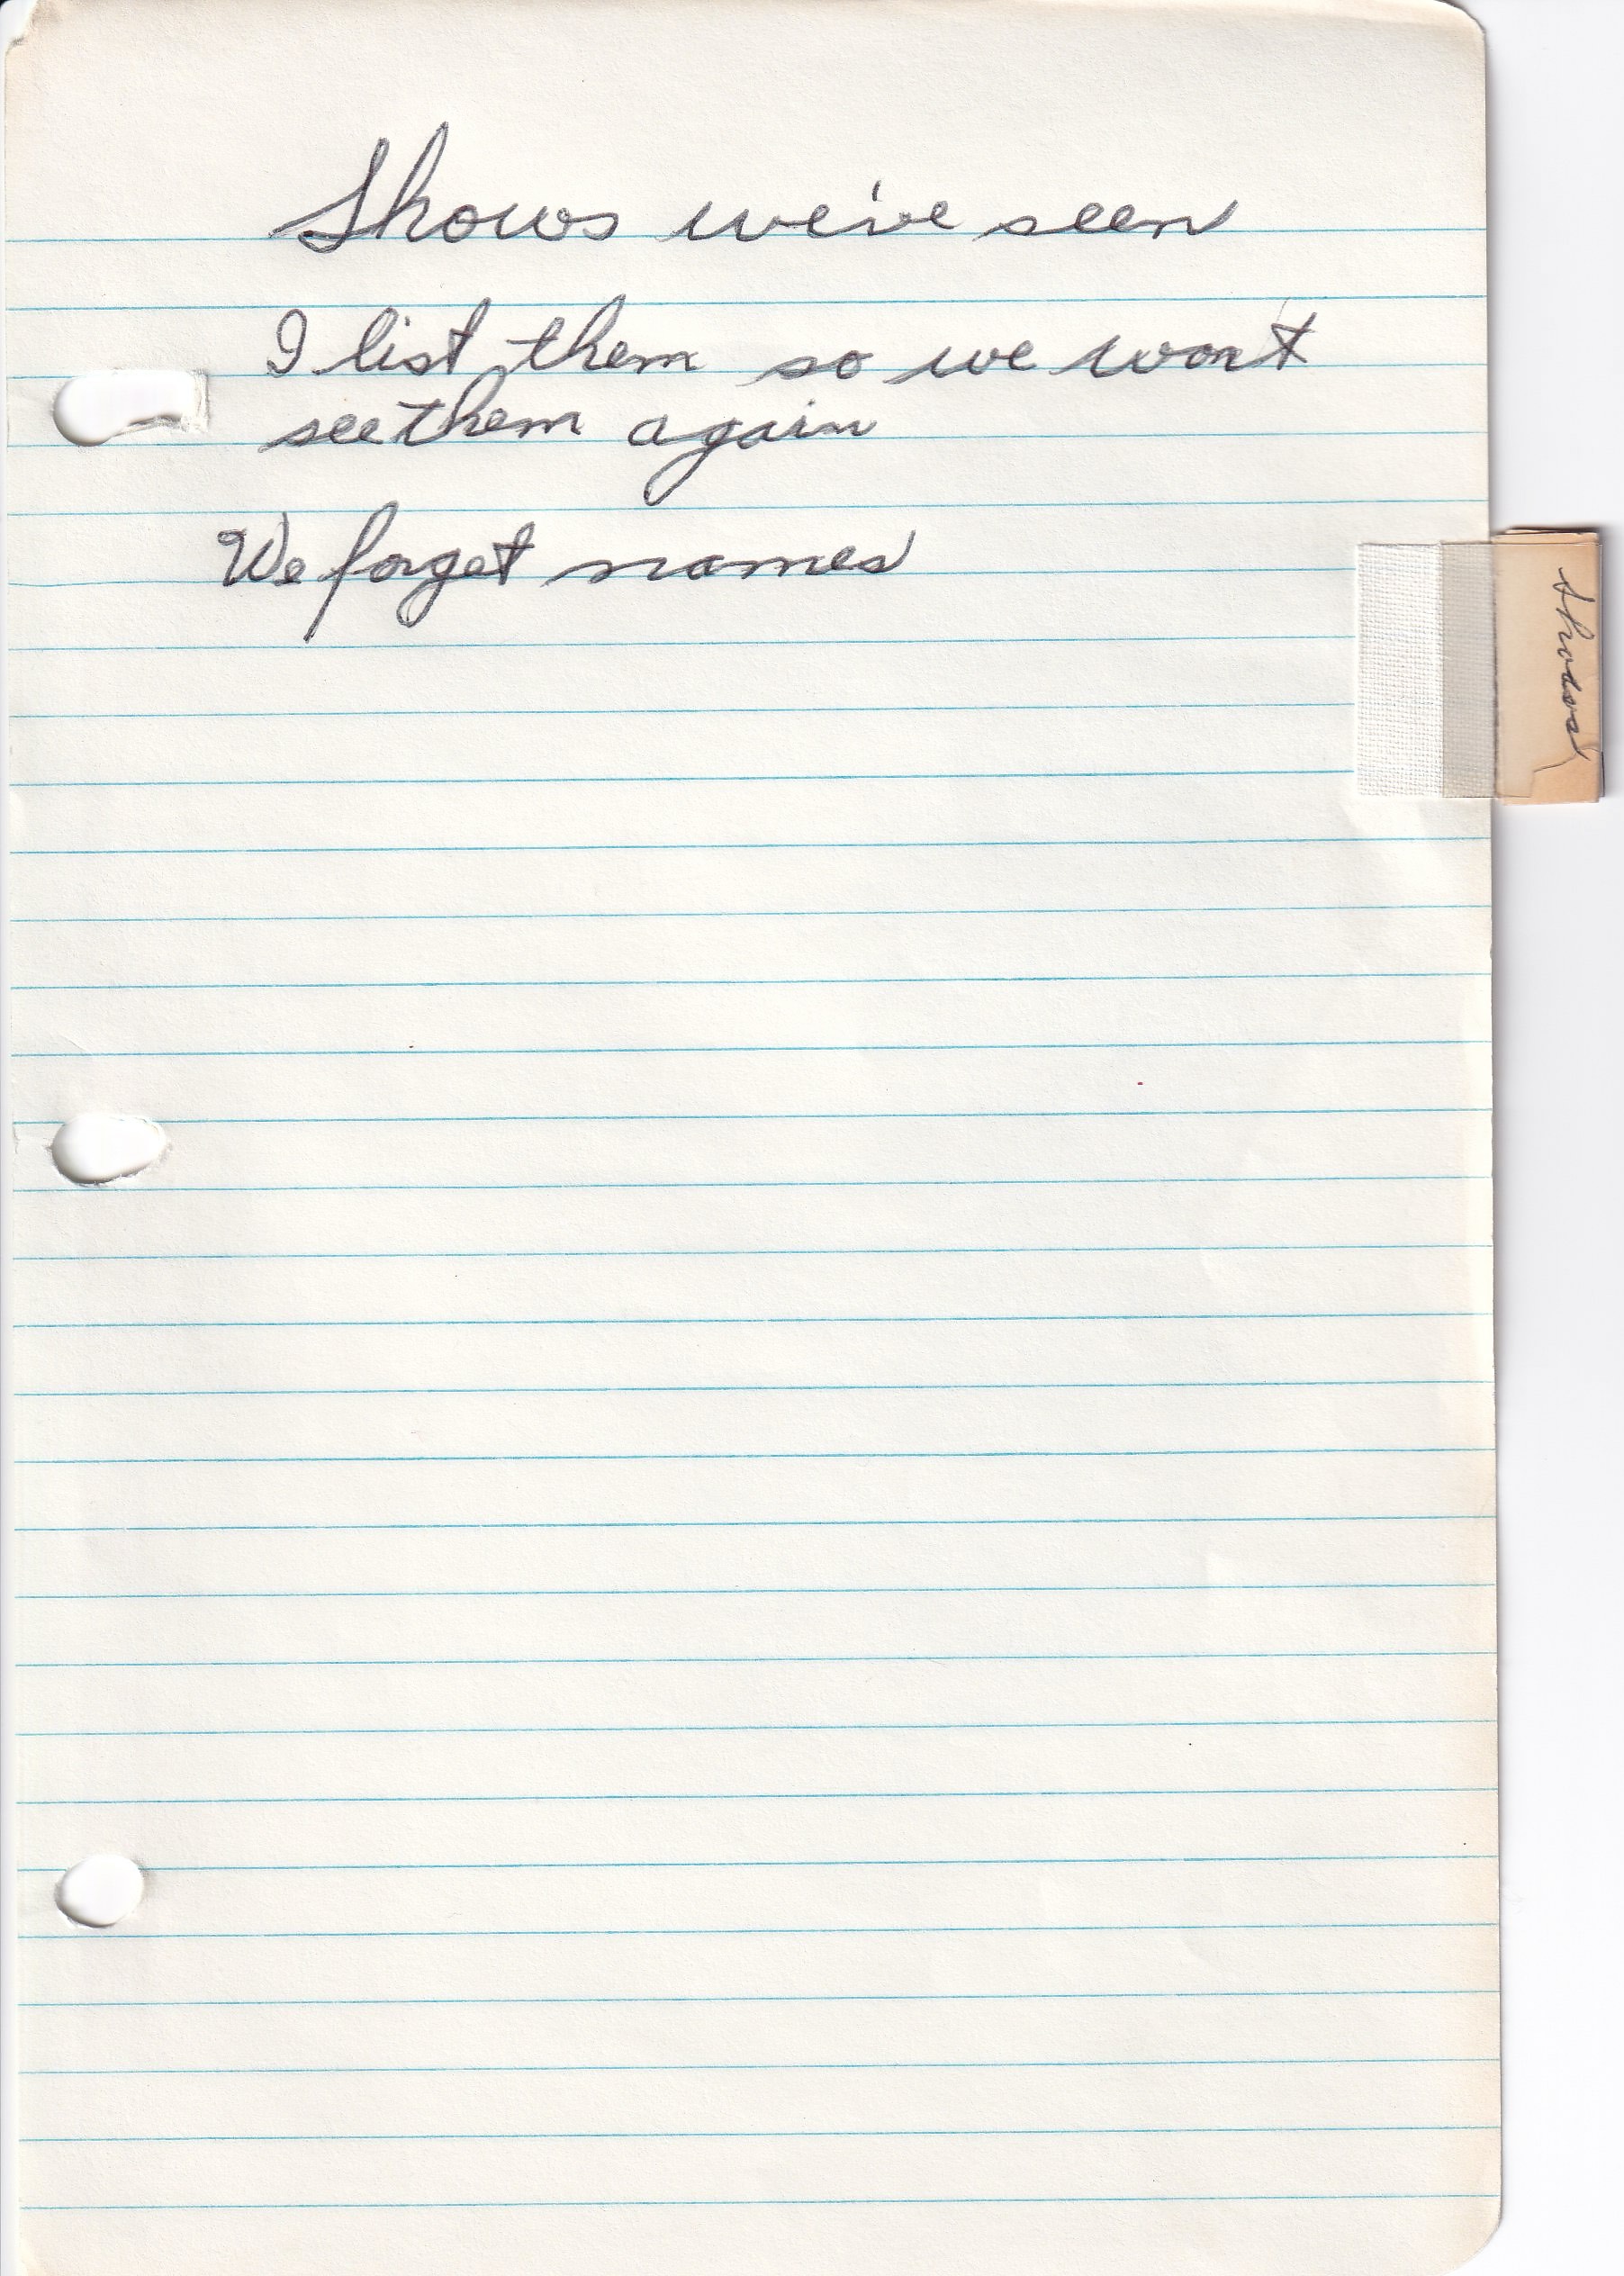 Shows we've seen
I list them so we wont
see them again
We forget names
Shows